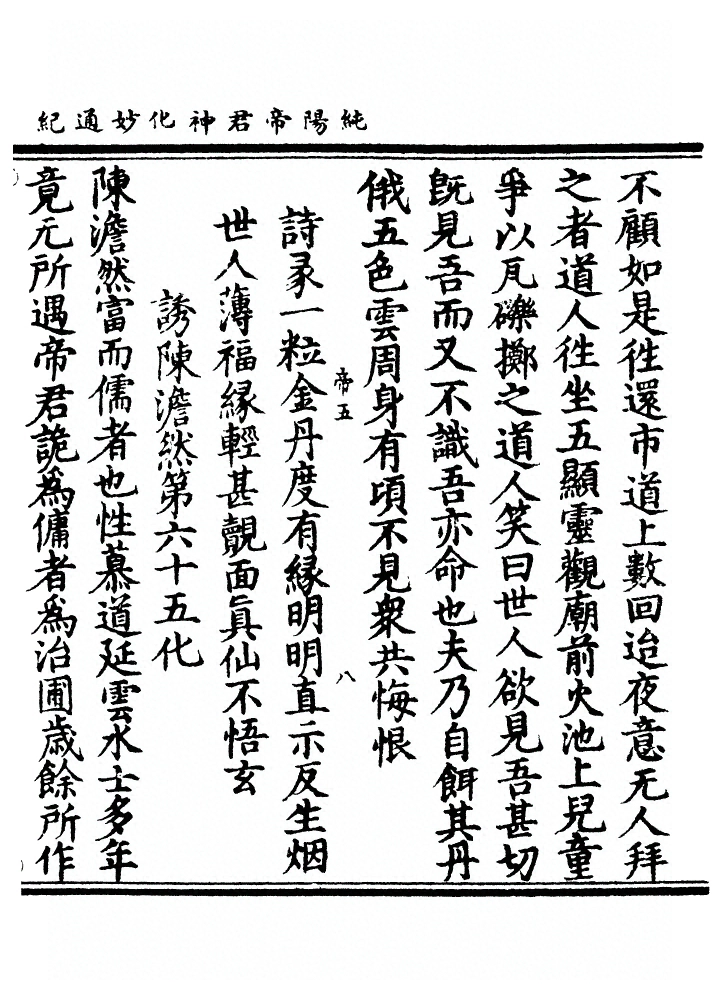 純陽帝君神化妙通紀
不顧如是徃還市道上數回迨夜意无人拜
之者道人徃坐五顯靈觀廟前火池上兒童
爭以瓦礫擲之道人笑曰世人欲見吾甚切
旣見吾而又不識吾亦命也夫乃自餌其丹
俄五色雲周身有頃不見衆共悔恨
帝五
八
詩𢑥一粒金丹度有緣明明直示反生烟
世人薄福緣輕甚覿面眞仙不悟玄
誘陳澹然第六十五化
陳澹然富而儒者也性慕道延雲水士多年
竟无所遇帝君詭爲傭者爲治圃歲餘所作